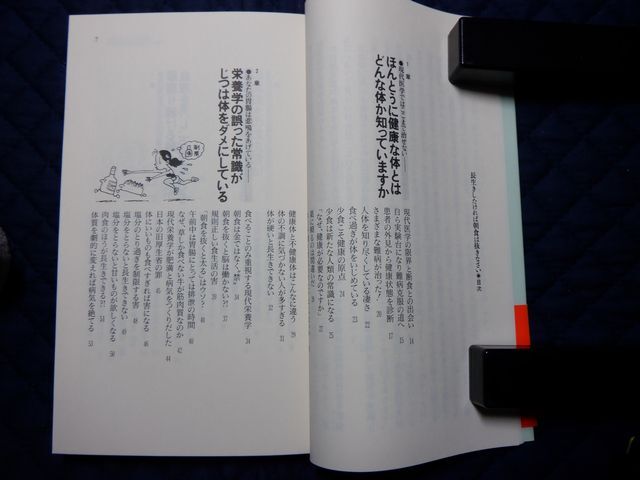 長生きしたければ朝食は抜きなさい●目次
1章
●現代医学ではここまで治せない
ほんとうに健康な体とは
どんな体か知っていますか
現代医学の限界と断食との出会い 14
自ら実験台になり難病克服の道へ 15
患者の外見から健康状態を診断 17
さまざまな難病が治った! 20
人体を知り尽くしている凄さ 22
食べ過ぎが体をいじめている
少食こそ健康の原点 24
少食は新たな人類の常識になる 25
「なぜ、健康が必要なのですか」 27
健康体と不健康体はこんなに違う 29
体の不調に気づかない人が多すぎる 31
体が硬いと長生きできない 32
2章
●あなたの胃腸は悲鳴をあげている
栄養学の誤った常識が
じつは体をダメにしている
食べることのみ重視する現代栄養学 34
朝食は金ではない 36
朝食を抜くと脳は働かない?
規則正しい食生活の害
「朝食を抜くと太る」はウソ? 40
午前中は胃腸にとっては排泄の時間
なぜ、草しか食べない牛が筋肉質なのか 42
現代栄養学が肥満と病気をつくりだした 44
日本の旧厚生省の罪
体にいいものも食べすぎれば害になる
塩分のとり過ぎを制限する害 48
塩分をとらないと長生きできない
塩分をとると甘いものが欲しくなる 50
肉食のほうが長生きできる?! 51
体質を劇的に変えれば病気を絶てる 53